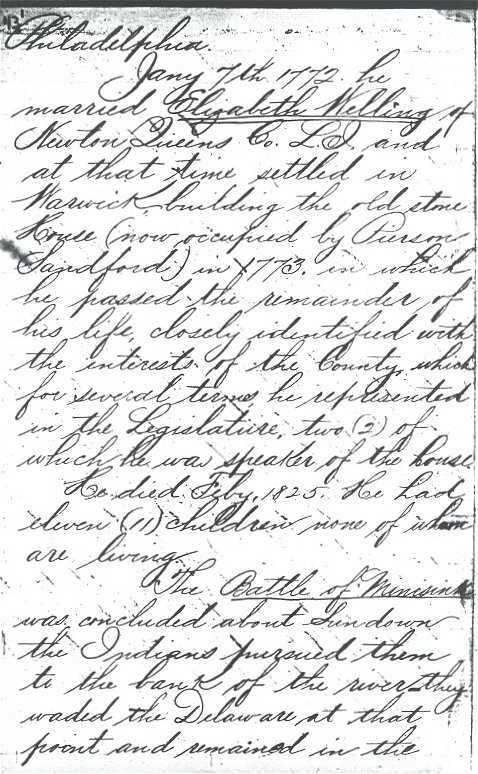 "13"
Philadelphia.
Jany 7th 1772 he
married Elizabeth Welling of
Newton Queens Co. L.I. and
at that time settled in
Warwick, building the old stone
House (now occupied by Pierson
Sandford) in 1773. in which
he passed the remainder of
his life, closely identified with
the interests of the County, which
for several terms, he represented
in the Legislature, two (2) of
which he was speaker of the house.
He died Feby, 1825. He had
eleven (11) children none of whom
are living.
The Battle of Minisink
was concluded about Sundown
the Indians pursued them
to the bank of the river - they
waded the Delaware at that
point and remained in the